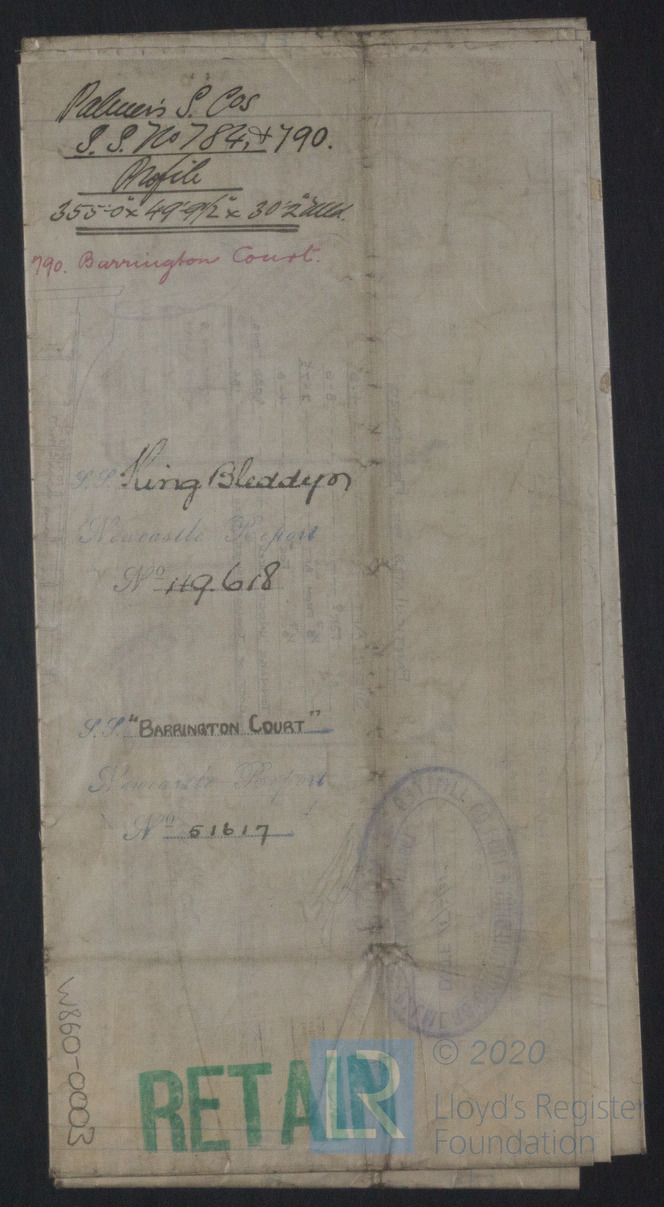 Palmer's S. Cos
S.S. No 784, & 790.
Profile
355'-0" x 49'-9½" x 30'-2" Mld.
790. Barrington Court.
S.S. King Bleddyn
Newcastle Report
No 49.618
S.S. "BARRINGTON COURT"
Newcastle Report
No 51617
W860-0003
RETAIN
LR
© 2020
Lloyd's Register
Foundation